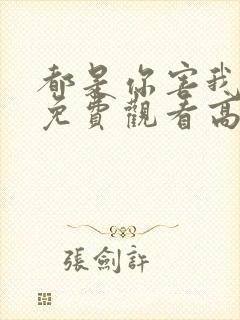 都是你害我
免費觀看高
張劍許